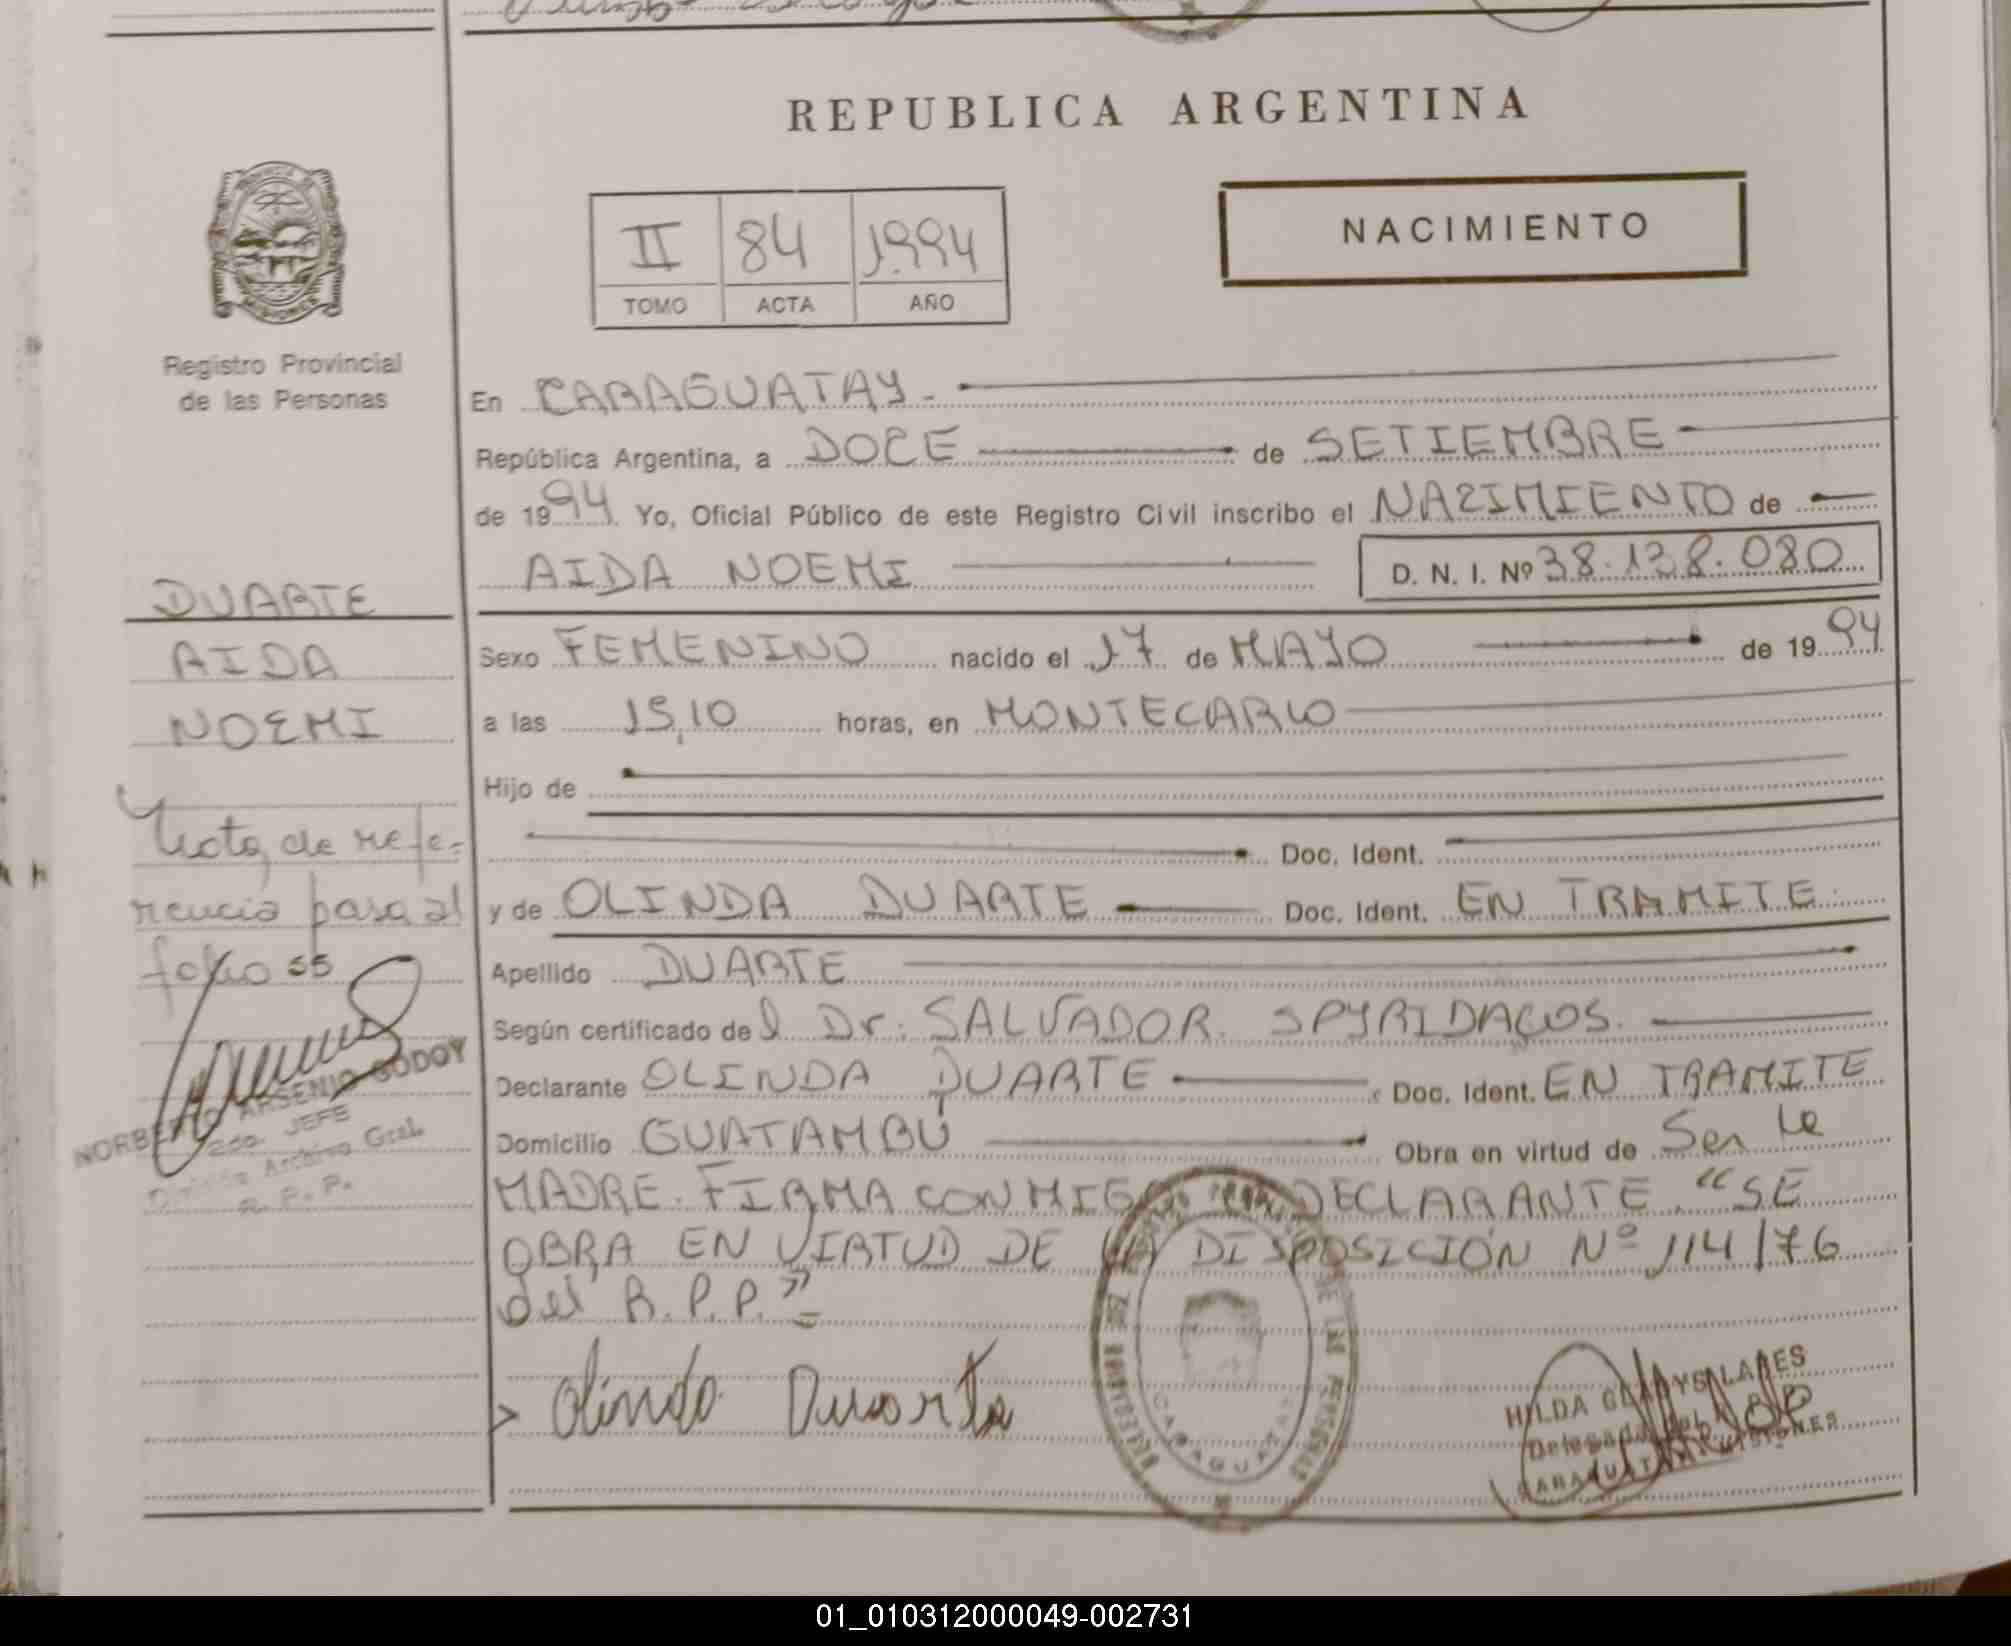 REPUBLICA ARGENTINA
II 84 1994
TOMO ACTA AÑO
NACIMIENTO
Registro Provincial
de las Personas
En CARAGUATAY.
República Argentina, a DOCE de SETIEMBRE
de 1994 Yo, Oficial Público de este Registro Civil inscribo el NACIMIENTO de
AIDA NOEMI D. N. I. Nº 38.138.080
DUARTE
AIDA
NOEMI
Sexo FEMENINO nacido el 17 de MAYO de 1994
a las 15,10 horas, en MONTECARLO
Hijo de
Doc. Ident.
y de OLINDA DUARTE Doc. Ident. EN TRAMITE.
Apellido DUARTE
Según certificado del Dr. SALVADOR SPYRIDACOS.
Declarante OLINDA DUARTE Doc. Ident. EN TRAMITE
Domicilio GUATAMBÚ Obra en virtud de Ser la
MADRE. FIRMA CONMIGO DECLARANTE. "SE
OBRA EN VIRTUD DE LA DISPOSICIÓN Nº 114/76
del R.P.P."
Nota de refe-
rencia pasa al
folio 55
NORBERTO ARSENIO GODOY
2do. JEFE
División Archivo Gral.
R. P. P.
Olinda Duarte
DE LAS PERSONAS
CARAGUATAY
HILDA GLADYS LARES
Delegada del R.P.P.
CARAGUATAY MISIONES
01_010312000049-002731